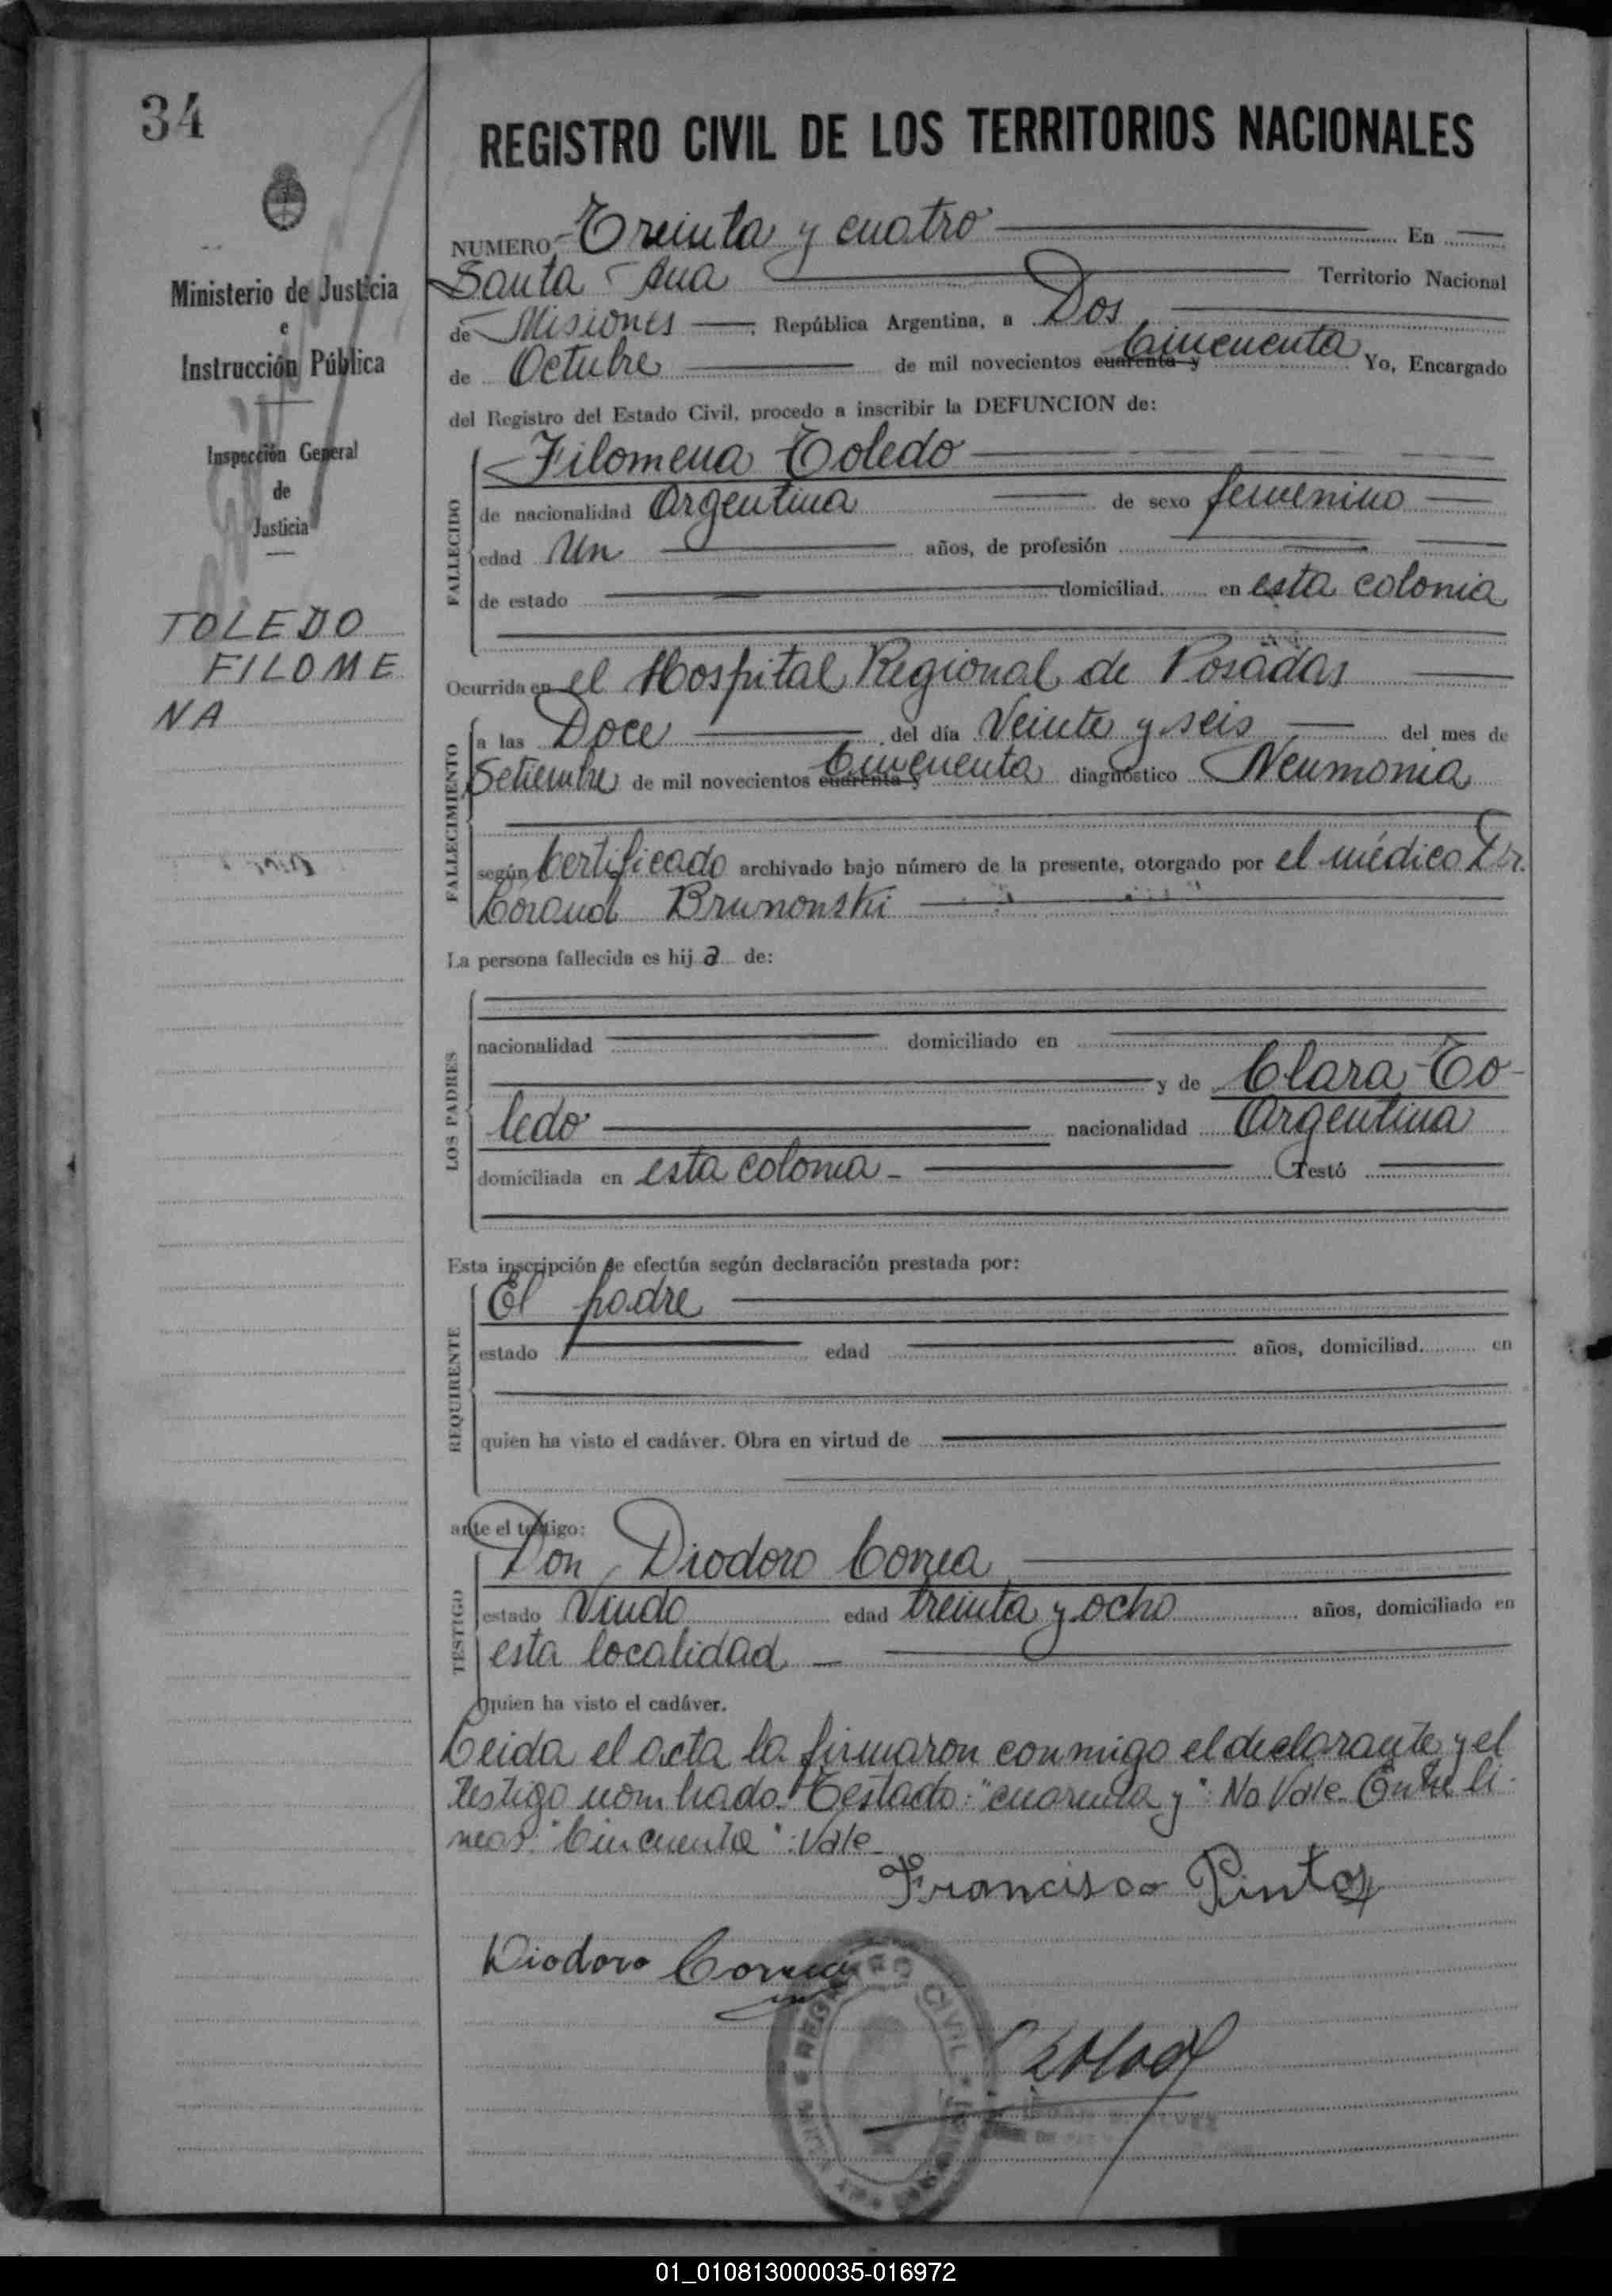 34
Ministerio de Justicia
e
Instrucción Pública
Inspección General
de
Justicia
TOLEDO
FILOME
NA
REGISTRO CIVIL DE LOS TERRITORIOS NACIONALES
NUMERO Treinta y cuatro En
Santa Ana Territorio Nacional
de Misiones República Argentina, a Dos
de Octubre de mil novecientos cuarenta y Cincuenta Yo, Encargado
del Registro del Estado Civil, procedo a inscribir la DEFUNCION de:
FALLECIDO
Filomena Toledo
de nacionalidad Argentina de sexo femenino
edad Un años, de profesión
de estado domiciliad en esta colonia
Ocurrida en el Hospital Regional de Posadas
FALLECIMIENTO
a las Doce del día Veinte y seis del mes de
Setiembre de mil novecientos cuarenta y Cincuenta diagnóstico Neumonia
según Certificado archivado bajo número de la presente, otorgado por el médico Dr.
Brunonski
La persona fallecida es hij a de:
LOS PADRES
nacionalidad domiciliado en
y de Clara To-
ledo nacionalidad Argentina
domiciliada en esta colonia - Testó
Esta inscripción se efectúa según declaración prestada por:
REQUIRENTE
El padre
estado edad años, domiciliad en
quien ha visto el cadáver. Obra en virtud de
ante el testigo:
TESTIGO
Don Diodoro Correa
estado Viudo edad treinta y ocho años, domiciliado en
esta localidad
quien ha visto el cadáver.
Leida el acta la firmaron conmigo el declarante y el
testigo nombrado. Testado: "cuarenta y": No Vale. Entre li-
neas: "Cincuenta": Vale
Francisco Pintos
Diodoro Correa
REGISTRO CIVIL
01_010813000035-016972